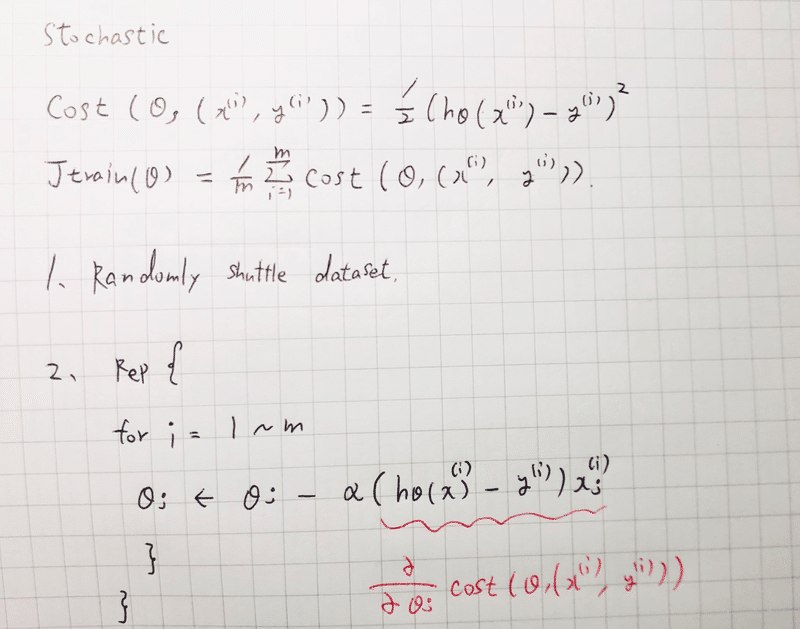 Stochastic
Cost (θ, (x⁽ⁱ⁾, y⁽ⁱ⁾)) = 1/2 (hθ(x⁽ⁱ⁾) - y⁽ⁱ⁾)²
Jtrain(θ) = 1/m Σᵢ₌₁ᵐ Cost (θ, (x⁽ⁱ⁾, y⁽ⁱ⁾)).
1、 Randomly shuttle dataset.
2、 Rep {
for i = 1 ~ m
θj ← θj - α(hθ(x⁽ⁱ⁾) - y⁽ⁱ⁾)xj⁽ⁱ⁾
}
∂/∂θj cost (θ,(x⁽ⁱ⁾, y⁽ⁱ⁾))
}